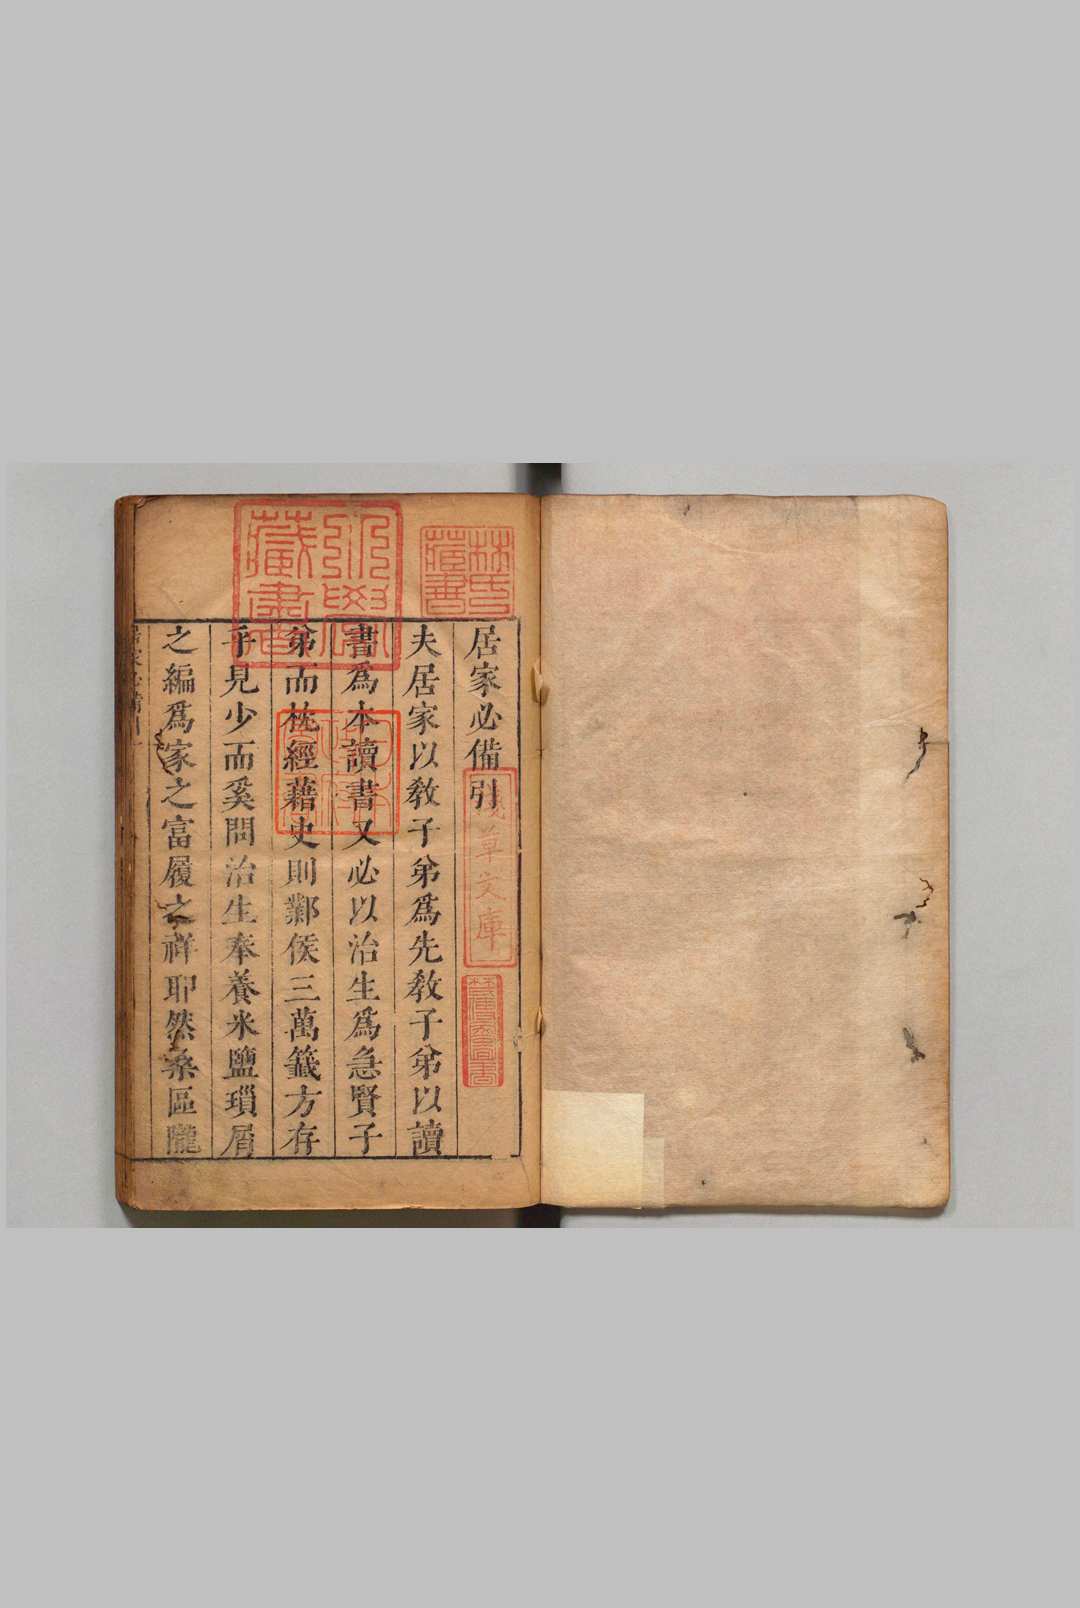 居家必備引
夫居家以教子弟爲先教子弟以讀
書爲本讀書又必以治生爲急賢子
弟而枕經藉史則鄴侯三萬籤方存
乎見少而奚問治生奉養米鹽瑣屑
之編爲家之富履之祥耶然桑區隴
林氏藏書
淺草文庫
藏書